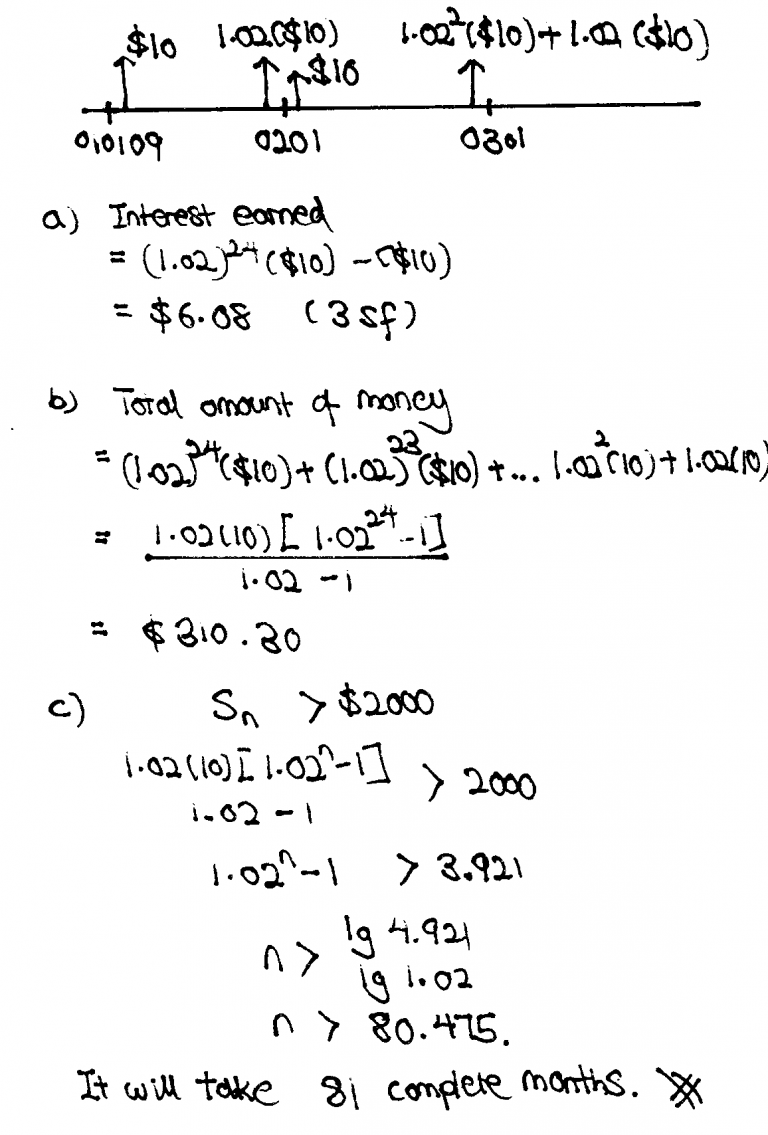 $10 1.02($10) 1.02²($10)+1.02($10)
$10
010109 0201 0301
a) Interest earned
= (1.02)²⁴($10) - ($10)
= $6.08 (3 sf)
b) Total amount of money
= (1.02)²⁴($10) + (1.02)²³($10) + ... 1.02²(10) + 1.02(10)
= 1.02(10)[1.02²⁴-1]
1.02 - 1
= $310.30
c) Sn > $2000
1.02(10)[1.02ⁿ-1] > 2000
1.02 - 1
1.02ⁿ-1 > 3.921
n > lg 4.921
lg 1.02
n > 80.475.
It will take 81 complete months.